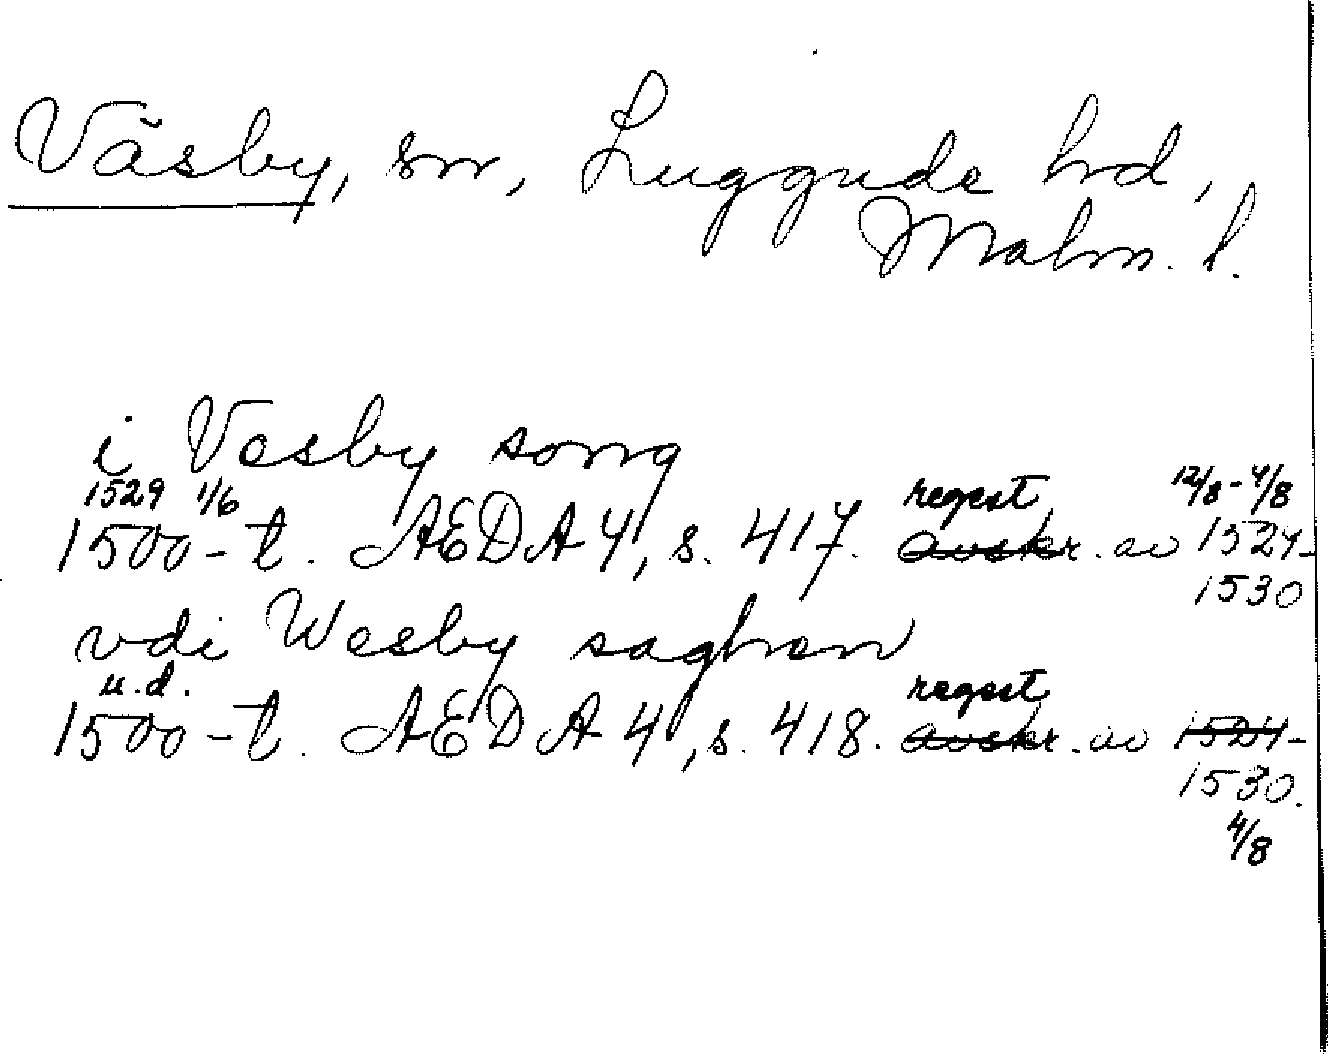 Väsby, sn, Luggude hd,
Malm. l.
i Vesby song
1529 1/6 regest 12/8-4/8
1500-t. AEDA 4, s. 417. avskr. av 1524-
1530
vdi Wesby soghen
u.d. regest
1500-t. AEDA 4, s. 418. avskr. av 1524-
1530.
4/8